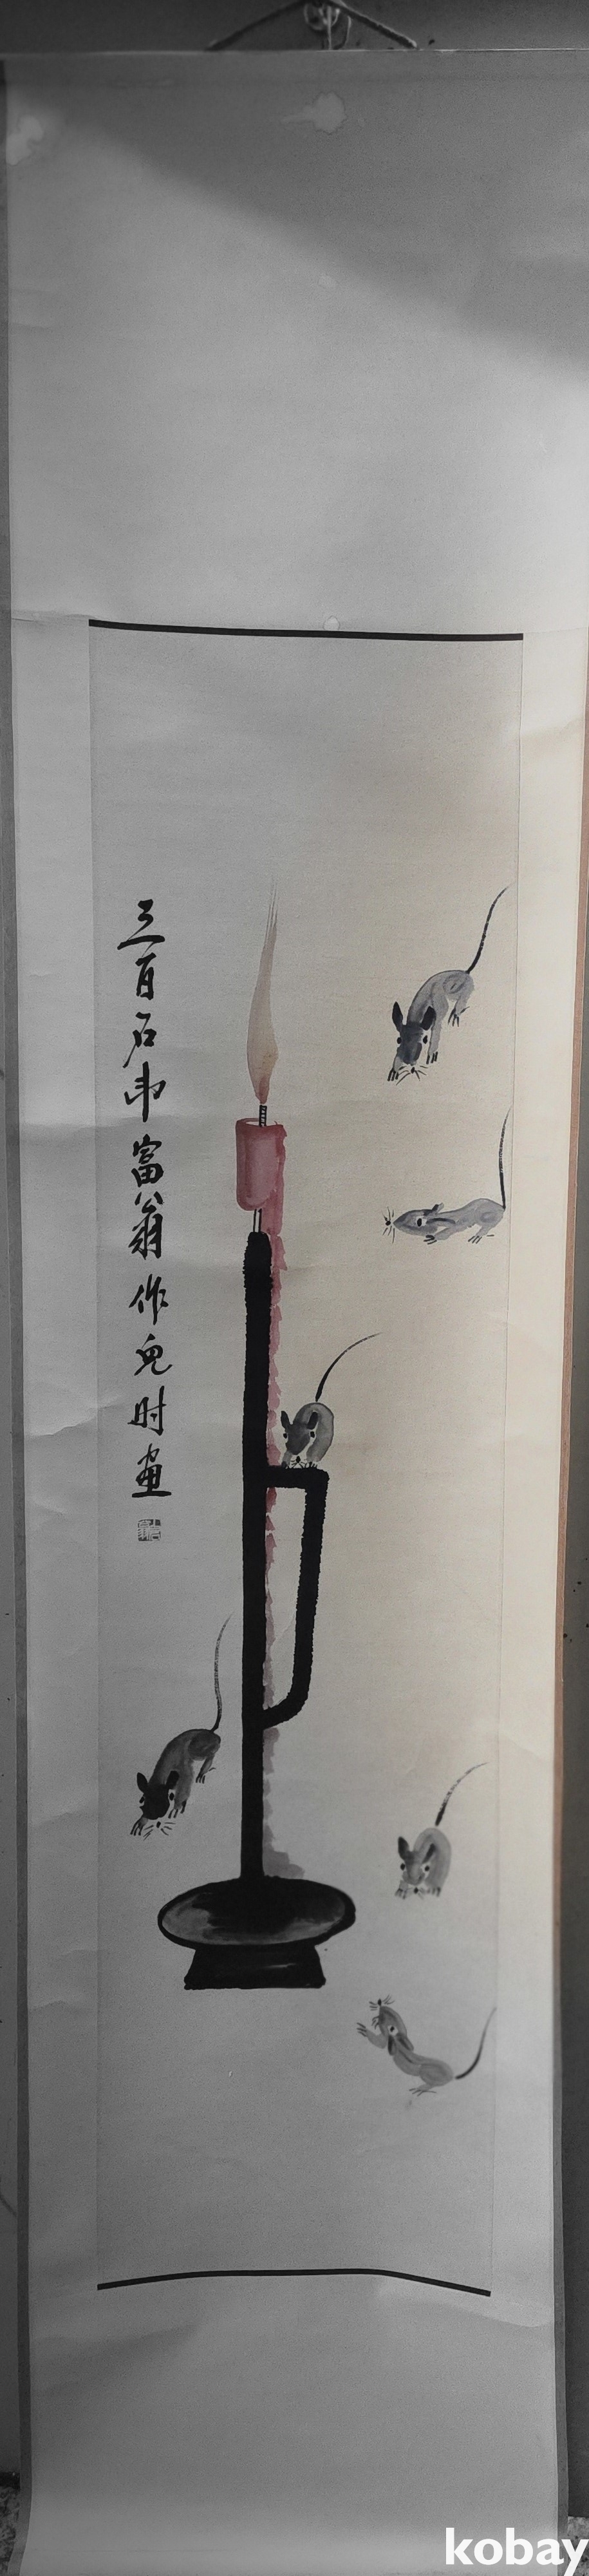 三百石印富翁作儿时画
kobay